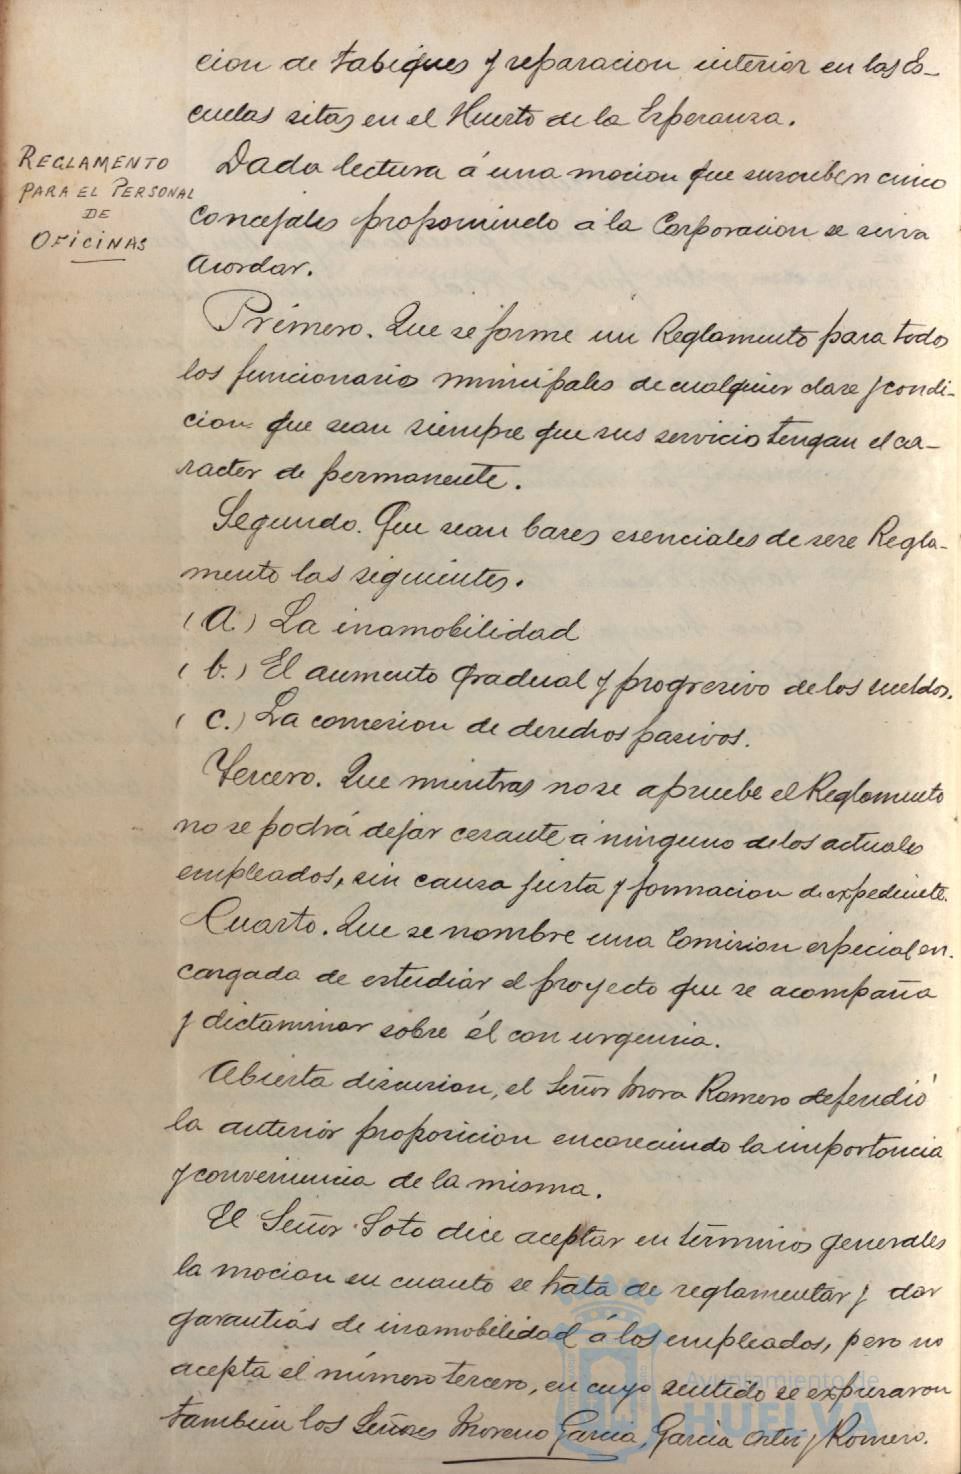 cion de tabiques y reparacion interior en las Es-
cuelas sitas en el Huerto de la Esperanza.
REGLAMENTO
PARA EL PERSONAL
DE
OFICINAS
Dada lectura á una mocion que suscriben cinco
concejales proponiendo á la Corporacion se sirva
acordar.
Primero. Que se forme un Reglamento para todos
los funcionarios municipales de cualquier clase y condi-
cion que sean siempre que sus servicios tengan el ca-
racter de permanente.
Segundo. Que sean bases esenciales de ese Regla-
mento las siguientes.
(A.) La inamobilidad
(b.) El aumento gradual y progresivo de los sueldos.
(C.) La concesion de derechos pasivos.
Tercero. Que mientras no se apruebe el Reglamento
no se podrá dejar cesante á ninguno de los actuales
empleados, sin causa justa y formacion de expediente.
Cuarto. Que se nombre una Comision especial en-
cargada de estudiar el proyecto que se acompaña
y dictaminar sobre él con urgencia.
Abierta discusion, el Señor Mora Romero defendió
la anterior proposicion encareciendo la importancia
y conveniencia de la misma.
El Señor Soto dice aceptar en términos generales
la mocion en cuanto se trata de reglamentar y dar
garantias de inamobilidad á los empleados, pero no
acepta el número tercero, en cuyo sentido se expresaron
tambien los Señores Moreno Garcia, Garcia Ortiz y Romero.
Ayuntamiento de
HUELVA